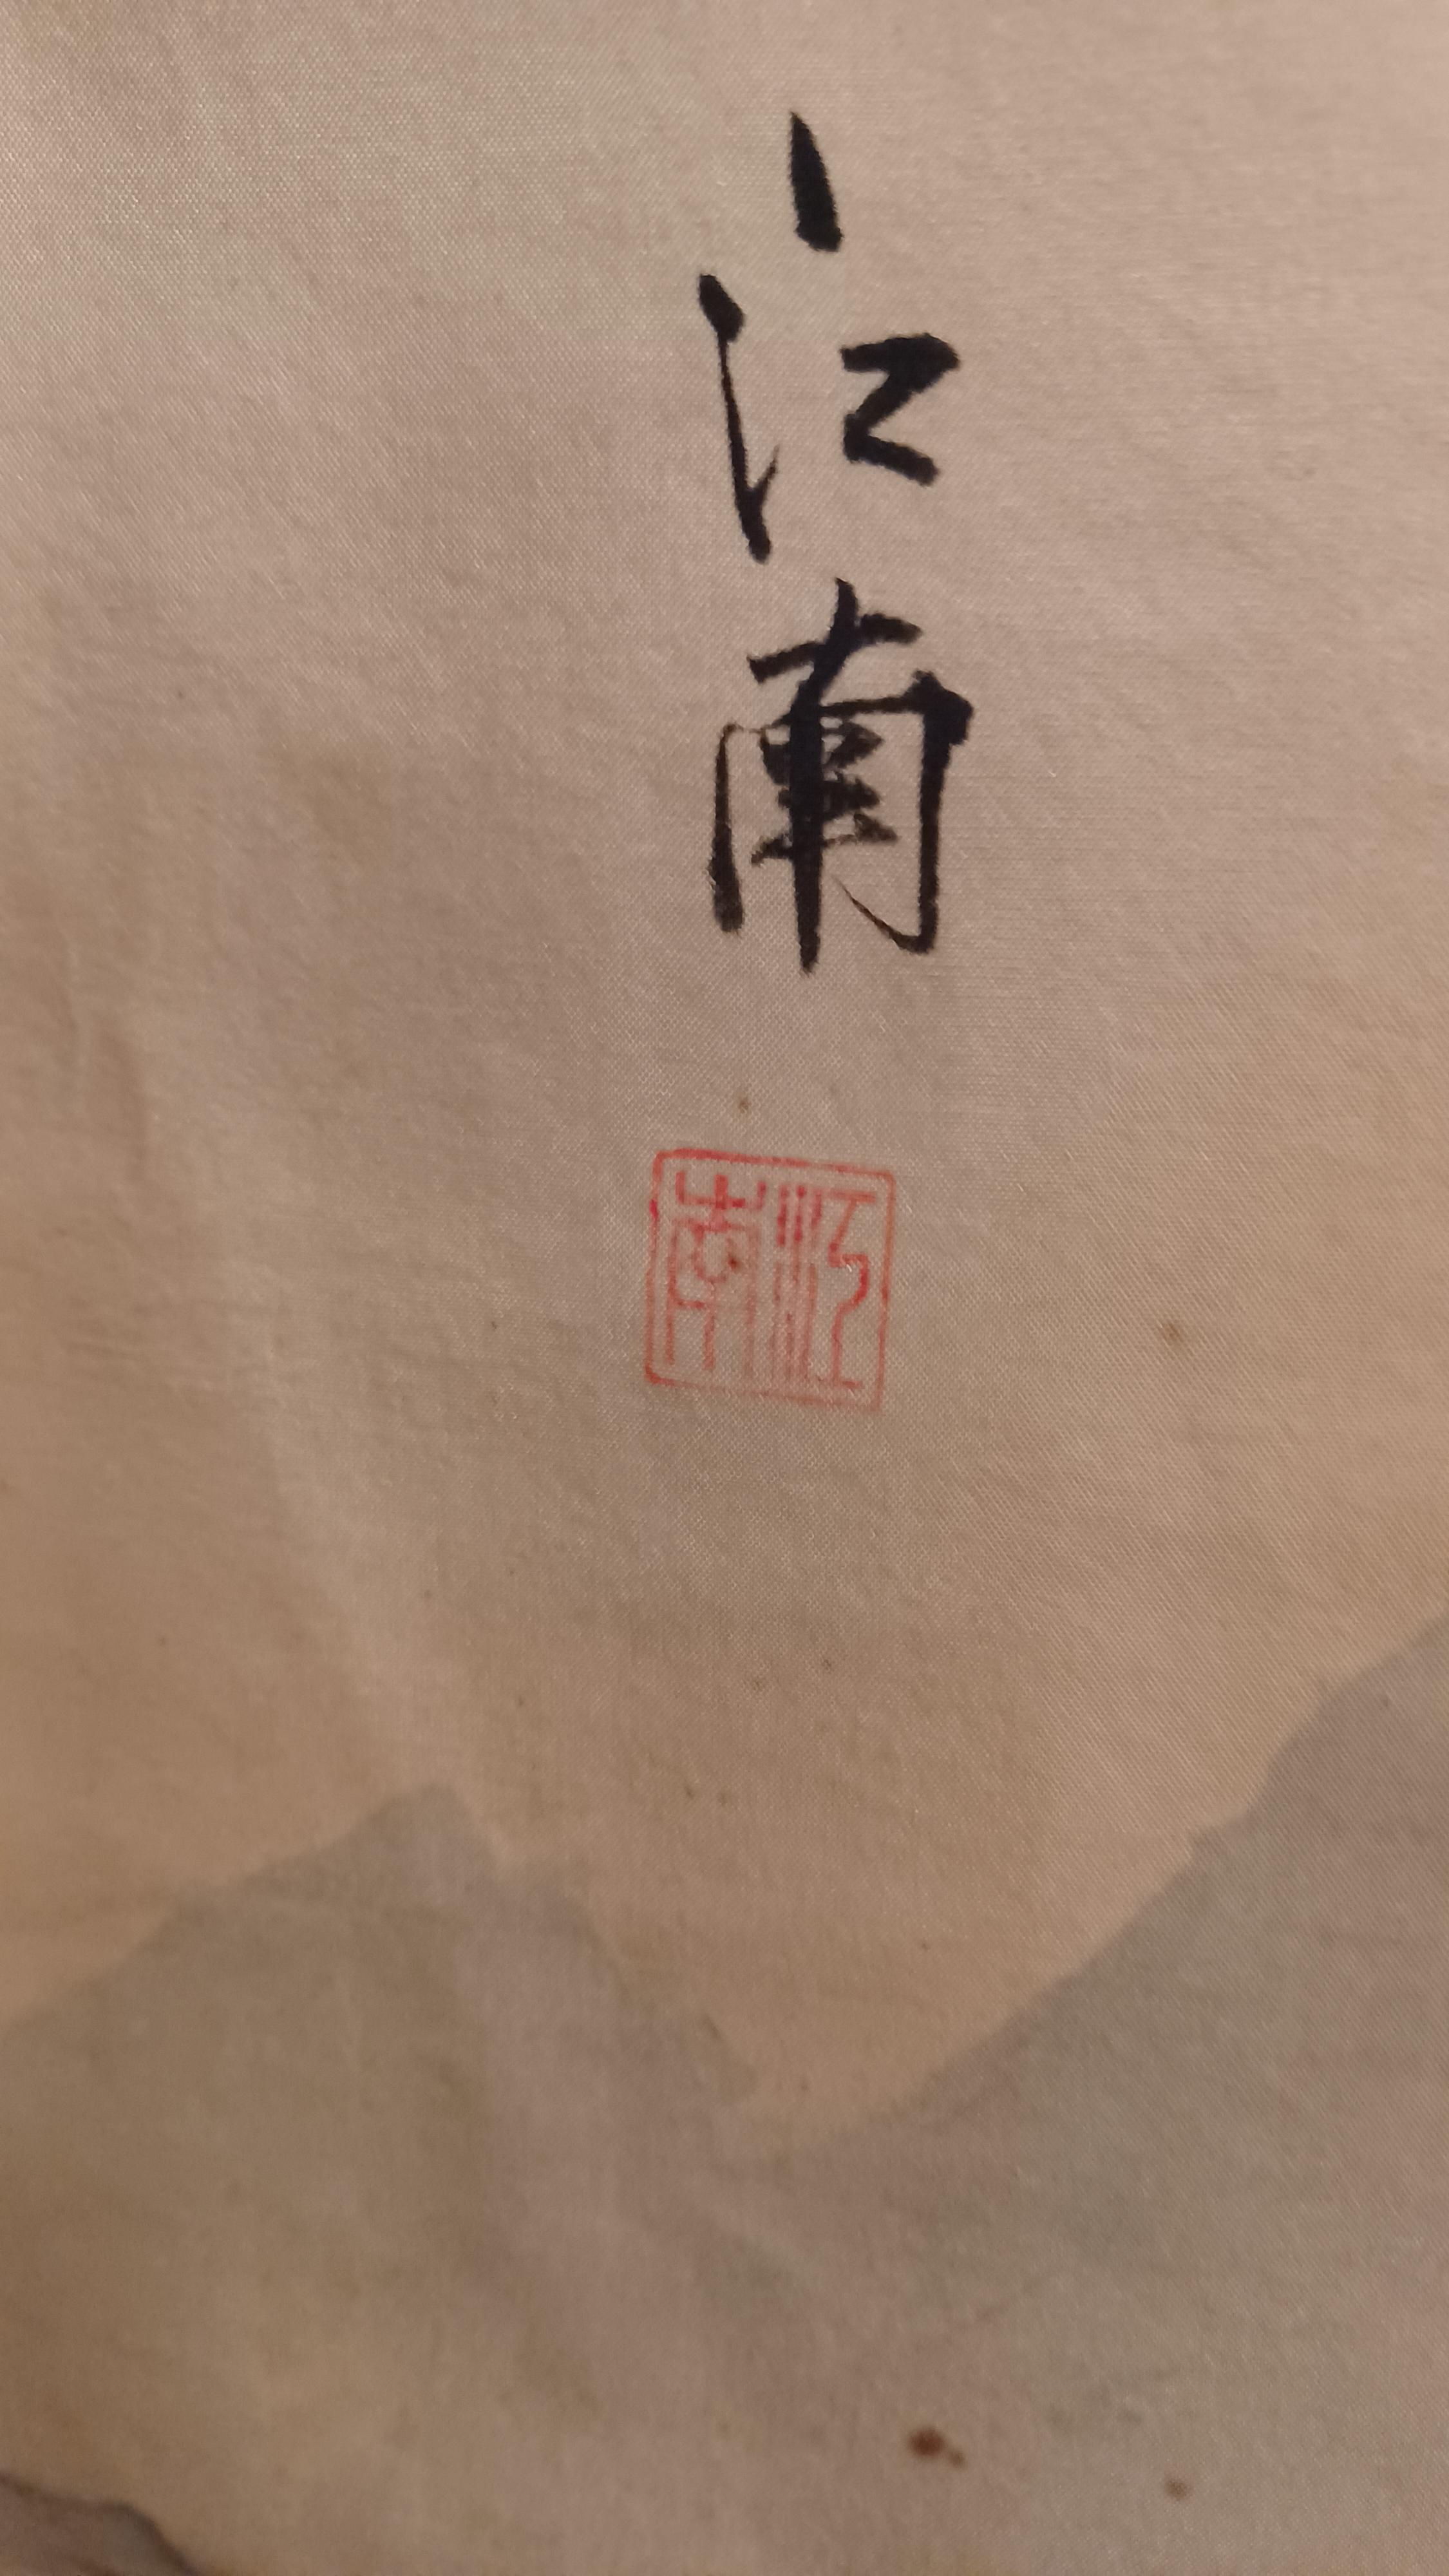 江南
江南